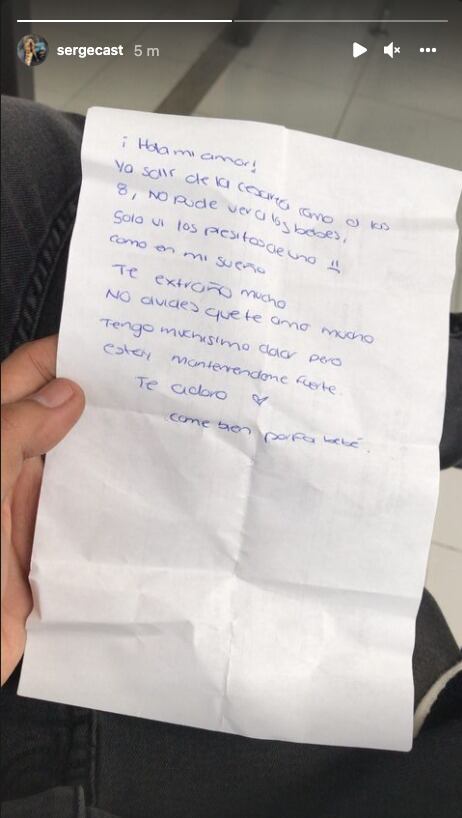 sergecast 5 m
¡Hola mi amor!
Ya salí de la cesárea como a las
8, no pude ver a los bebés,
Solo vi los piesitos de uno !!
como en mi sueño
Te extraño mucho
No olvides que te amo mucho
Tengo muchísimo dolor pero
estoy manteniendome fuerte.
Te adoro ♡
come bien porfa bebé.